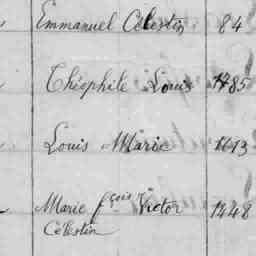 Emmanuel Célestin 84
Théophile Louis 1485
Louis Marie 1613
Marie fçois Victor 1448
Célestin